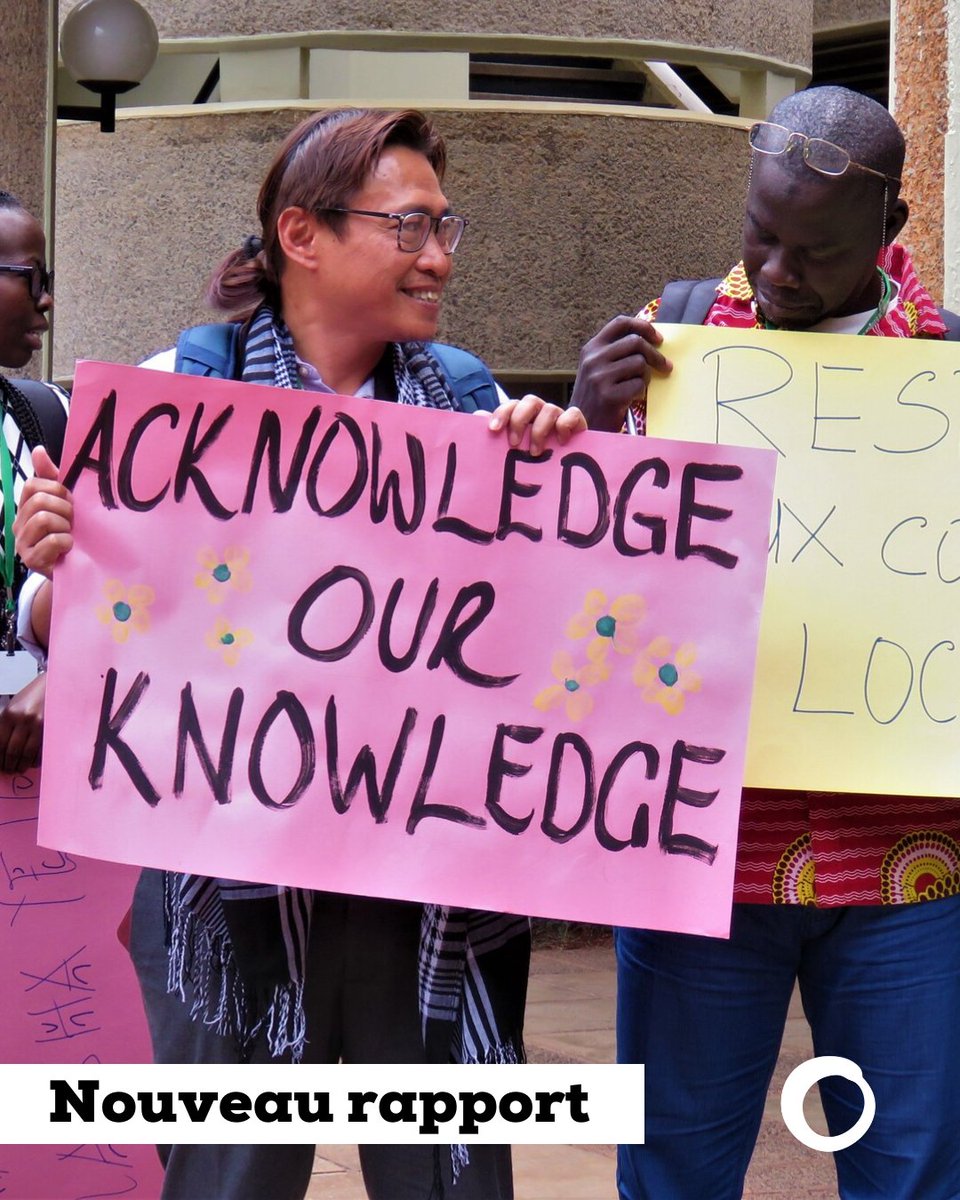 ACKNOWLEDGE
OUR
KNOWLEDGE
REST
UX CO
LOC
Nouveau rapport